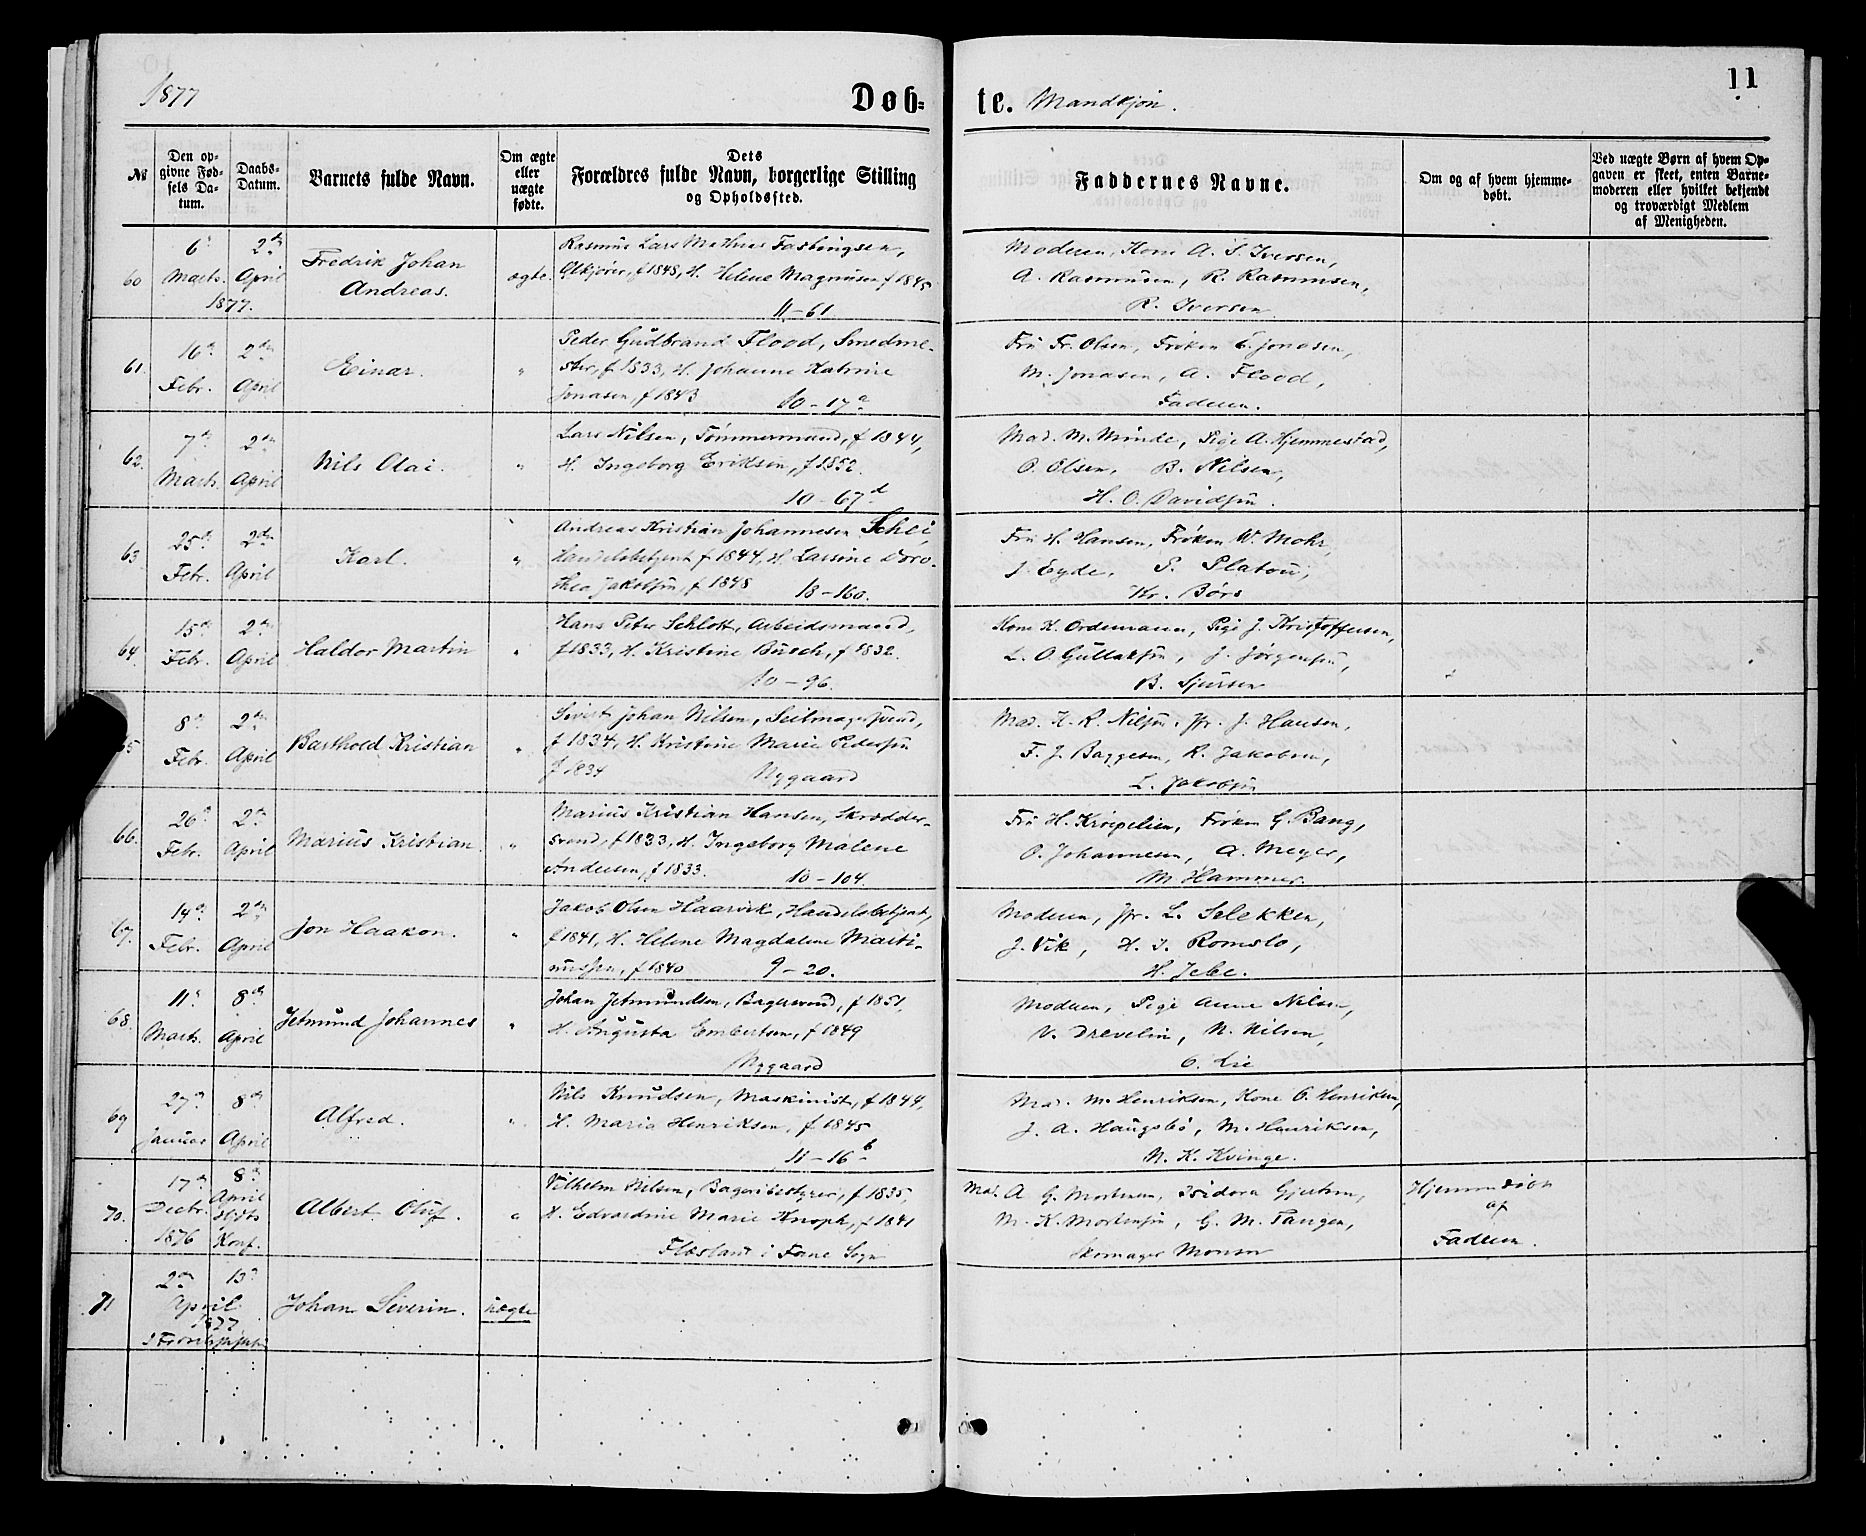 1877
Døb-
te. Mandkjøn.
11
№
Den opgivne Fødsels Datum.
Daabs-Datum.
Barnets fulde Navn.
Om ægte eller uægte fødte.
Dets Forældres fulde Navn, borgerlige Stilling og Opholdssted.
Faddernes Navne.
Om og af hvem hjemmedøbt.
Ved uægte Børn af hvem Opgaven er skeet, enten Barnemoderen eller hvilket bekjendt og troværdigt Medlem af Menigheden.
60
6 Marts 2den April 1877.
Fredrik Johan Andreas.
ægte.
Rasmus Lars Mathias Fastingsen,
f 1848, H. Helene Magnusen f 1845
11-61
Moderen, Kone A. S. Iversen,
A. Rasmusen, R. Rasmusen,
R. Iversen
61.
16de Febr. 2den April
Einar.
"
Peder Gudbrand Flood, Smedme-
ster, f 1833, H. Johanne Katrine
Jonasen, f 1843 10-17a
Fru Fr. Olsen, Frøken E. Jonasen,
M. Jonasen, A. Flood,
Faderen.
62.
7de Marts. 2den April
Nils Olai.
"
Lars Nilsen, Tømmermand, f 1844,
H. Ingeborg Eriksen, f 1852.
10-67d
Mad. M. Minde, Pige A. Hjemmestad,
O. Olsen, B. Nilsen,
H. O. Davidsen.
63.
25de Febr. 2den April
Karl.
"
Andreas Kristian Johannesen Schei
Handelsbetjent f 1844, H. Larsine Doro-
thea Jakobsen, f 1848 18-160.
Fru H. Hansen, Frøken W. Mohr,
J. Eyde, S. Platou,
Kr. Børs
64.
15de Febr. 2den April
Haldor Martin
"
Hans Peter Schlott, Arbeidsmand,
f 1833, H. Kristine Busch, f 1832.
10-96.
Kone K. Ordemann, Pige J. Kristoffersen,
L. O. Gullaksen, J. Jørgensen,
B. Sjursen
65
8de Febr. 2den April
Barthold Kristian
"
Sivert Johan Nilsen, Seilmagersvend,
f 1834, H. Kristine Marie Pedersen
f 1834 Nygaard
Mad. K. R. Nilsen, Jfr. J. Hansen,
F. J. Baggesen, R. Jakobsen,
L. Jakobsen
66.
26de Febr. 2den April
Marius Kristian
"
Marius Kristian Hansen, Skrædder-
svend, f 1833, H. Ingeborg Malene
Andersen, f 1833. 10-104.
Fru H. Krøpelien, Frøken G. Bang,
O. Johannesen, A. Meyer,
M. Hammer.
67.
14de Febr. 2den April
Jon Haakon.
"
Jakob Olsen Haarvik, Handelsbetjent,
f 1841, H. Helene Magdalene Marti-
nussen, f 1840 9-20.
Moderen, Jfr. L. Selekken,
J. Vik, H. J. Romslo,
H. Jebe.
68.
11 Marts. 8de April
Jetmund Johannes
"
Johan Jetmundsen, Bagersvend, f 1851,
H. Augusta Embertsen, f 1849
Nygaard
Moderen, Pige Anne Nilsen,
V. Drevelin, N. Nilsen,
O. Lie
69
27de Januar 8de April
Alfred.
"
Nils Knudsen, Maskinist, f 1844,
H. Maria Henriksen, f 1845
11-16b
Mad. M. Henriksen, Kone O. Henriksen,
J. A. Haugsbø, M. Henriksen,
N. K. Kvinge.
70.
17de Decbr. 1876 8de April Konf.
Albert Oluf.
"
Vilhelm Nilsen, Bageribestyrer, f 1835,
H. Edvardine Marie Knoph, f 1841
Flesland i Fane Sogn
Mad. A G. Mortensen, Isidora Gjertsen,
M. K. Mortensen, G. M. Tangen,
Skomager Monsen
Hjemmedøbt af Faderen.
71
2den 13de April 1877
Johan Severin.
uægte